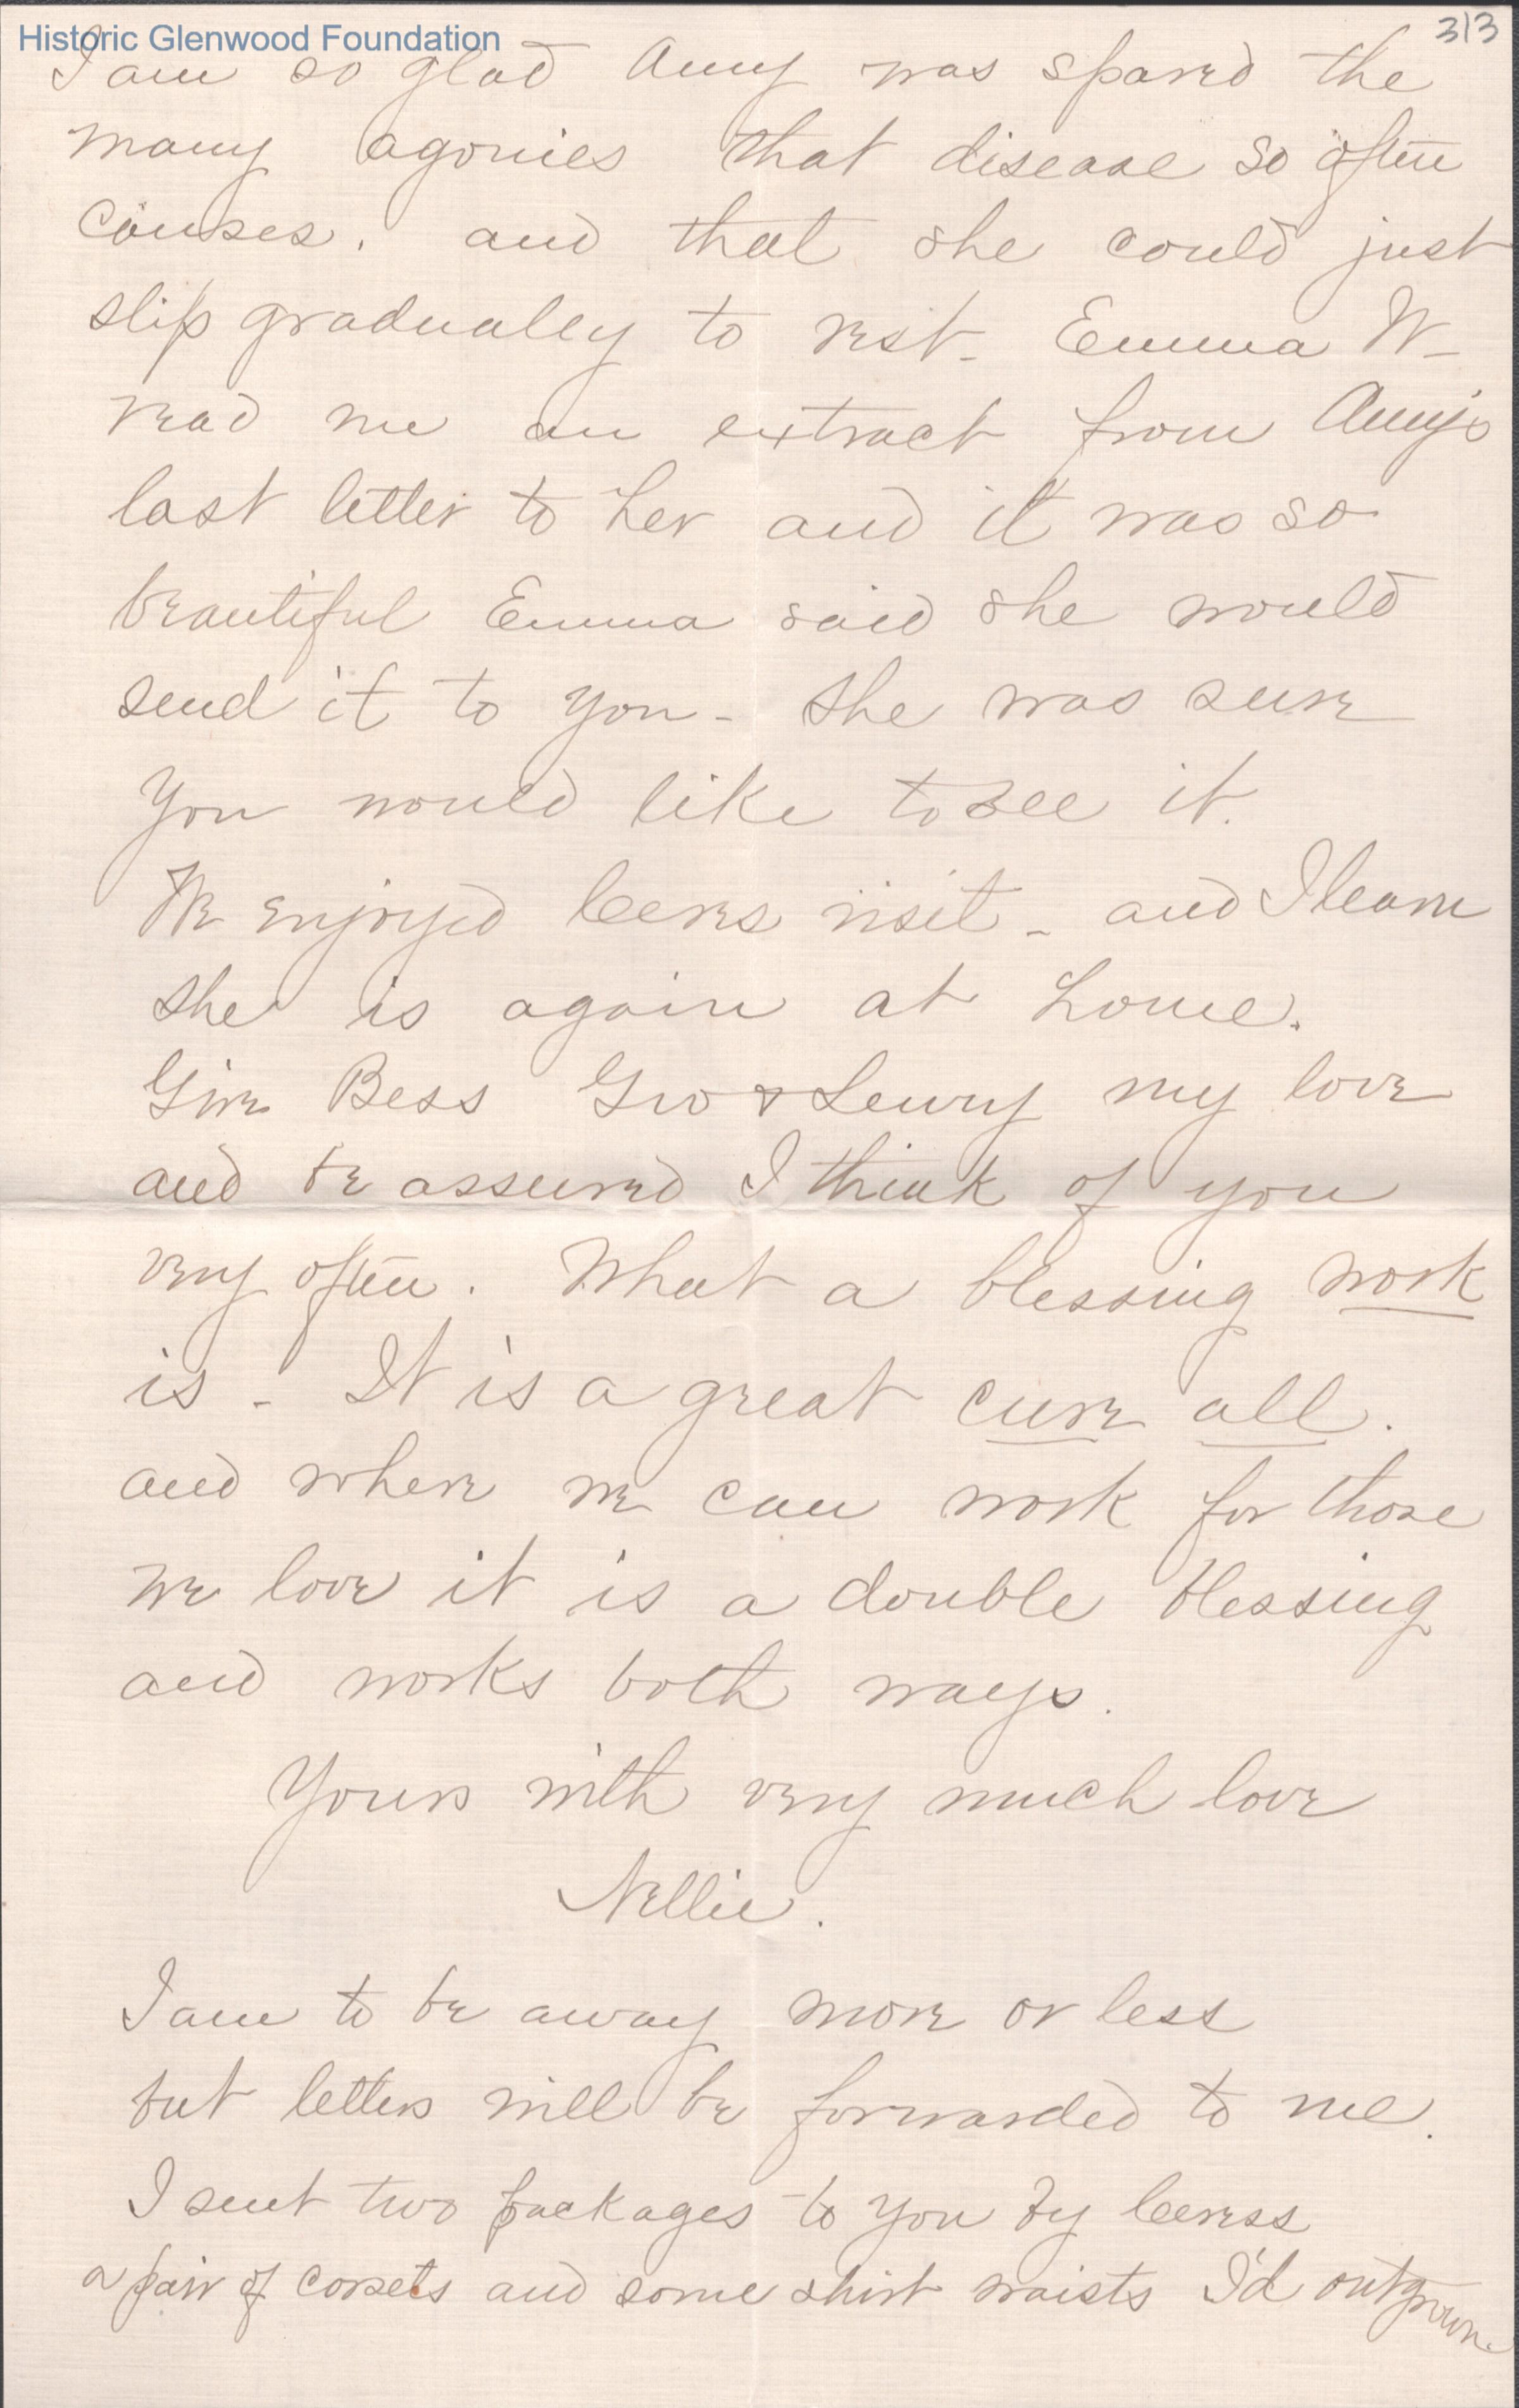 Historic Glenwood Foundation
313
I am so glad Amy was spared the
many agonies that disease so often
causes. and that she could just
slip gradually to rest - Emma W -
read me an extract from Amy's
last letter to her and it was so
beautiful Emma said she would
send it to you - She was sure
you would like to see it.
We enjoyed visit - and I learn
she is again at home.
Give Bess Geo & Lewry my love
and be assured I think of you
very often. What a blessing work
is - It is a great cure all.
and where we can work for those
we love it is a double blessing
and works both ways.
Yours with very much love
Nellie.
I am to be away more or less
but letters will be forwarded to me.
I sent two packages to you by
a pair of corsets and some shirt waists I'd outgrown.